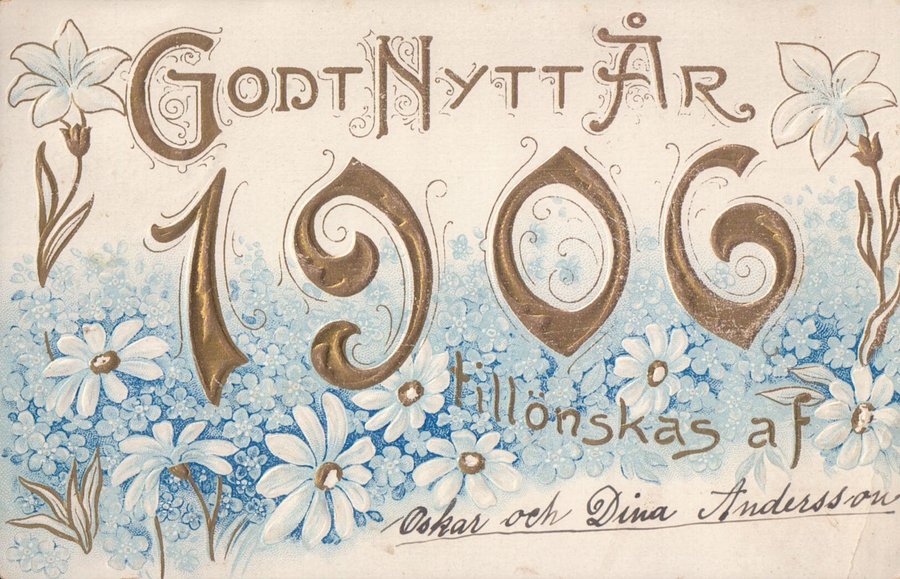 Godt Nytt År
1906
tillönskas af
Oskar och Dina Andersson